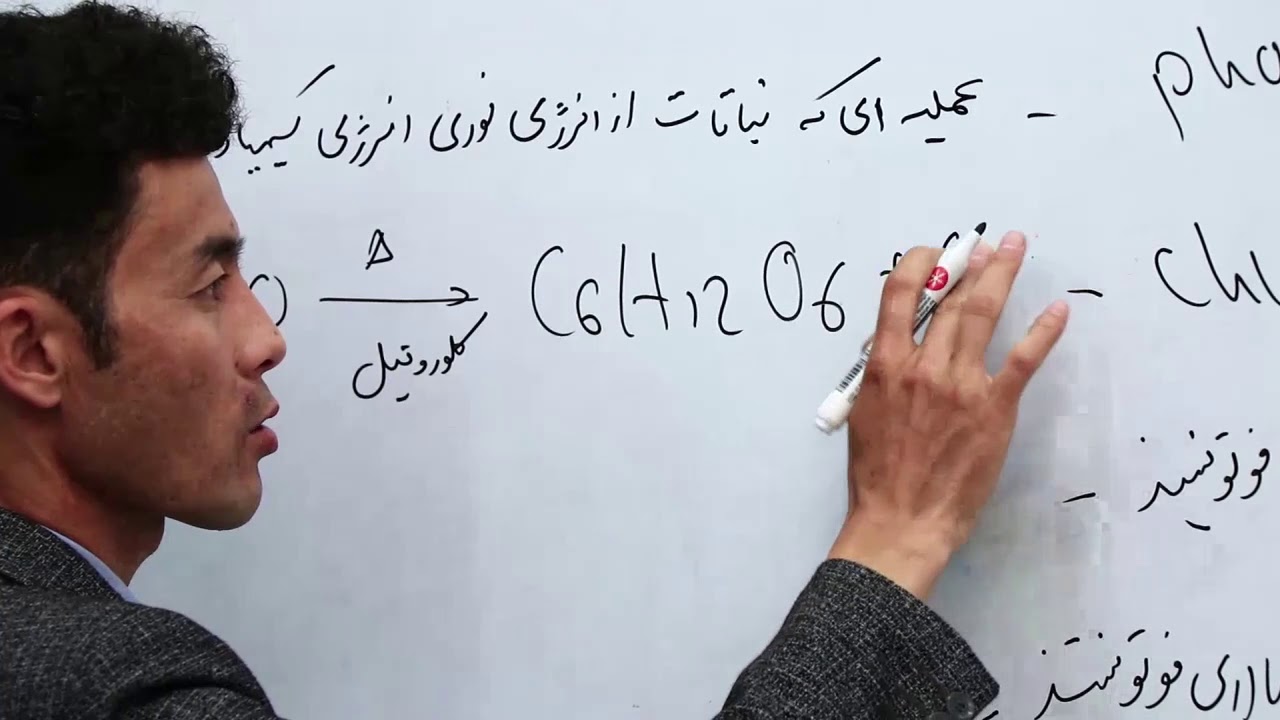 pho
- عملیه ای که نباتات از انرژی نوری انرژی کیمیاو
O Δ→ C6H12O6 +
کلوروتیل
- Chl
- فوتوسنز
ارای فوتوسنتز